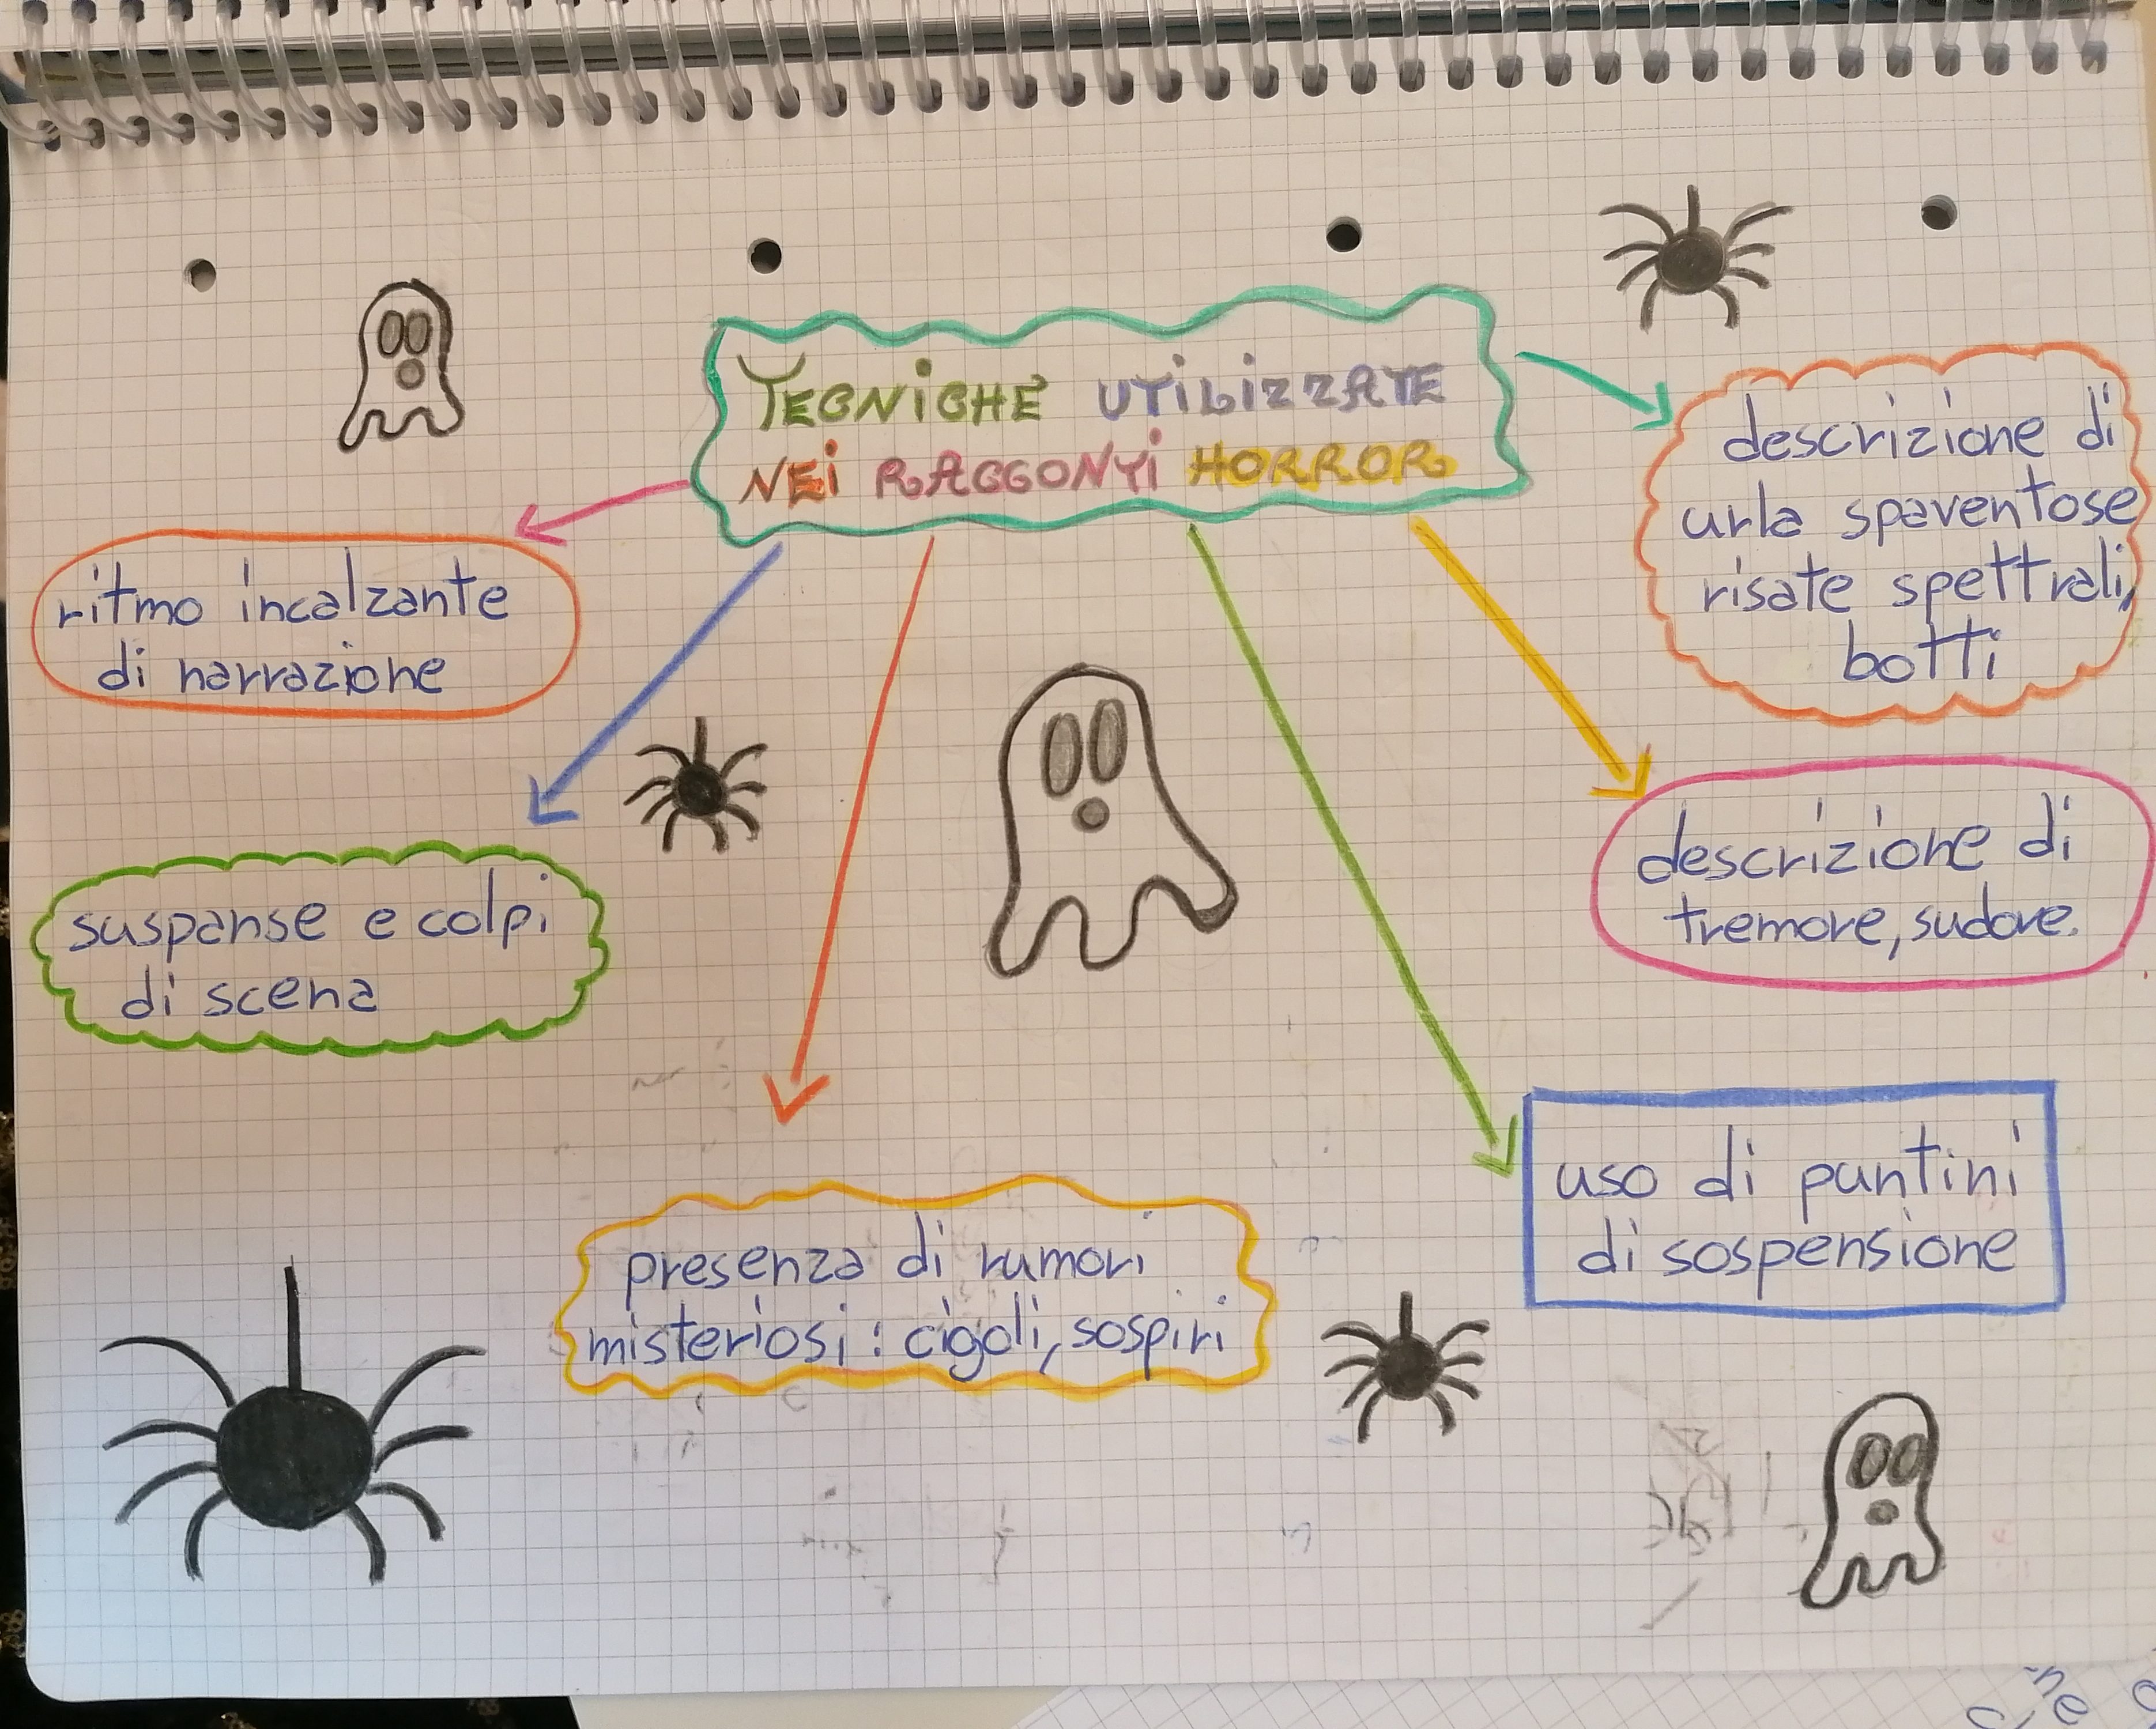 TECNICHE UTILIZZATE
NEI RACCONTI HORROR
ritmo incalzante
di narrazione
suspanse e colpi
di scena
presenza di rumori
misteriosi: cigoli, sospiri
uso di puntini
di sospensione
descrizione di
tremore, sudore.
descrizione di
urla spaventose
risate spettrali,
botti